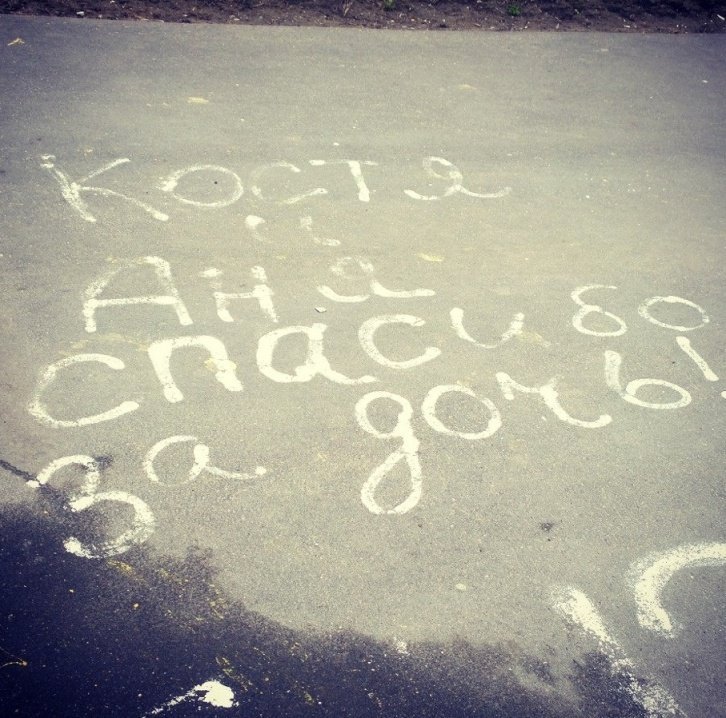 Костя
и
Аня
спасибо
за дочь!